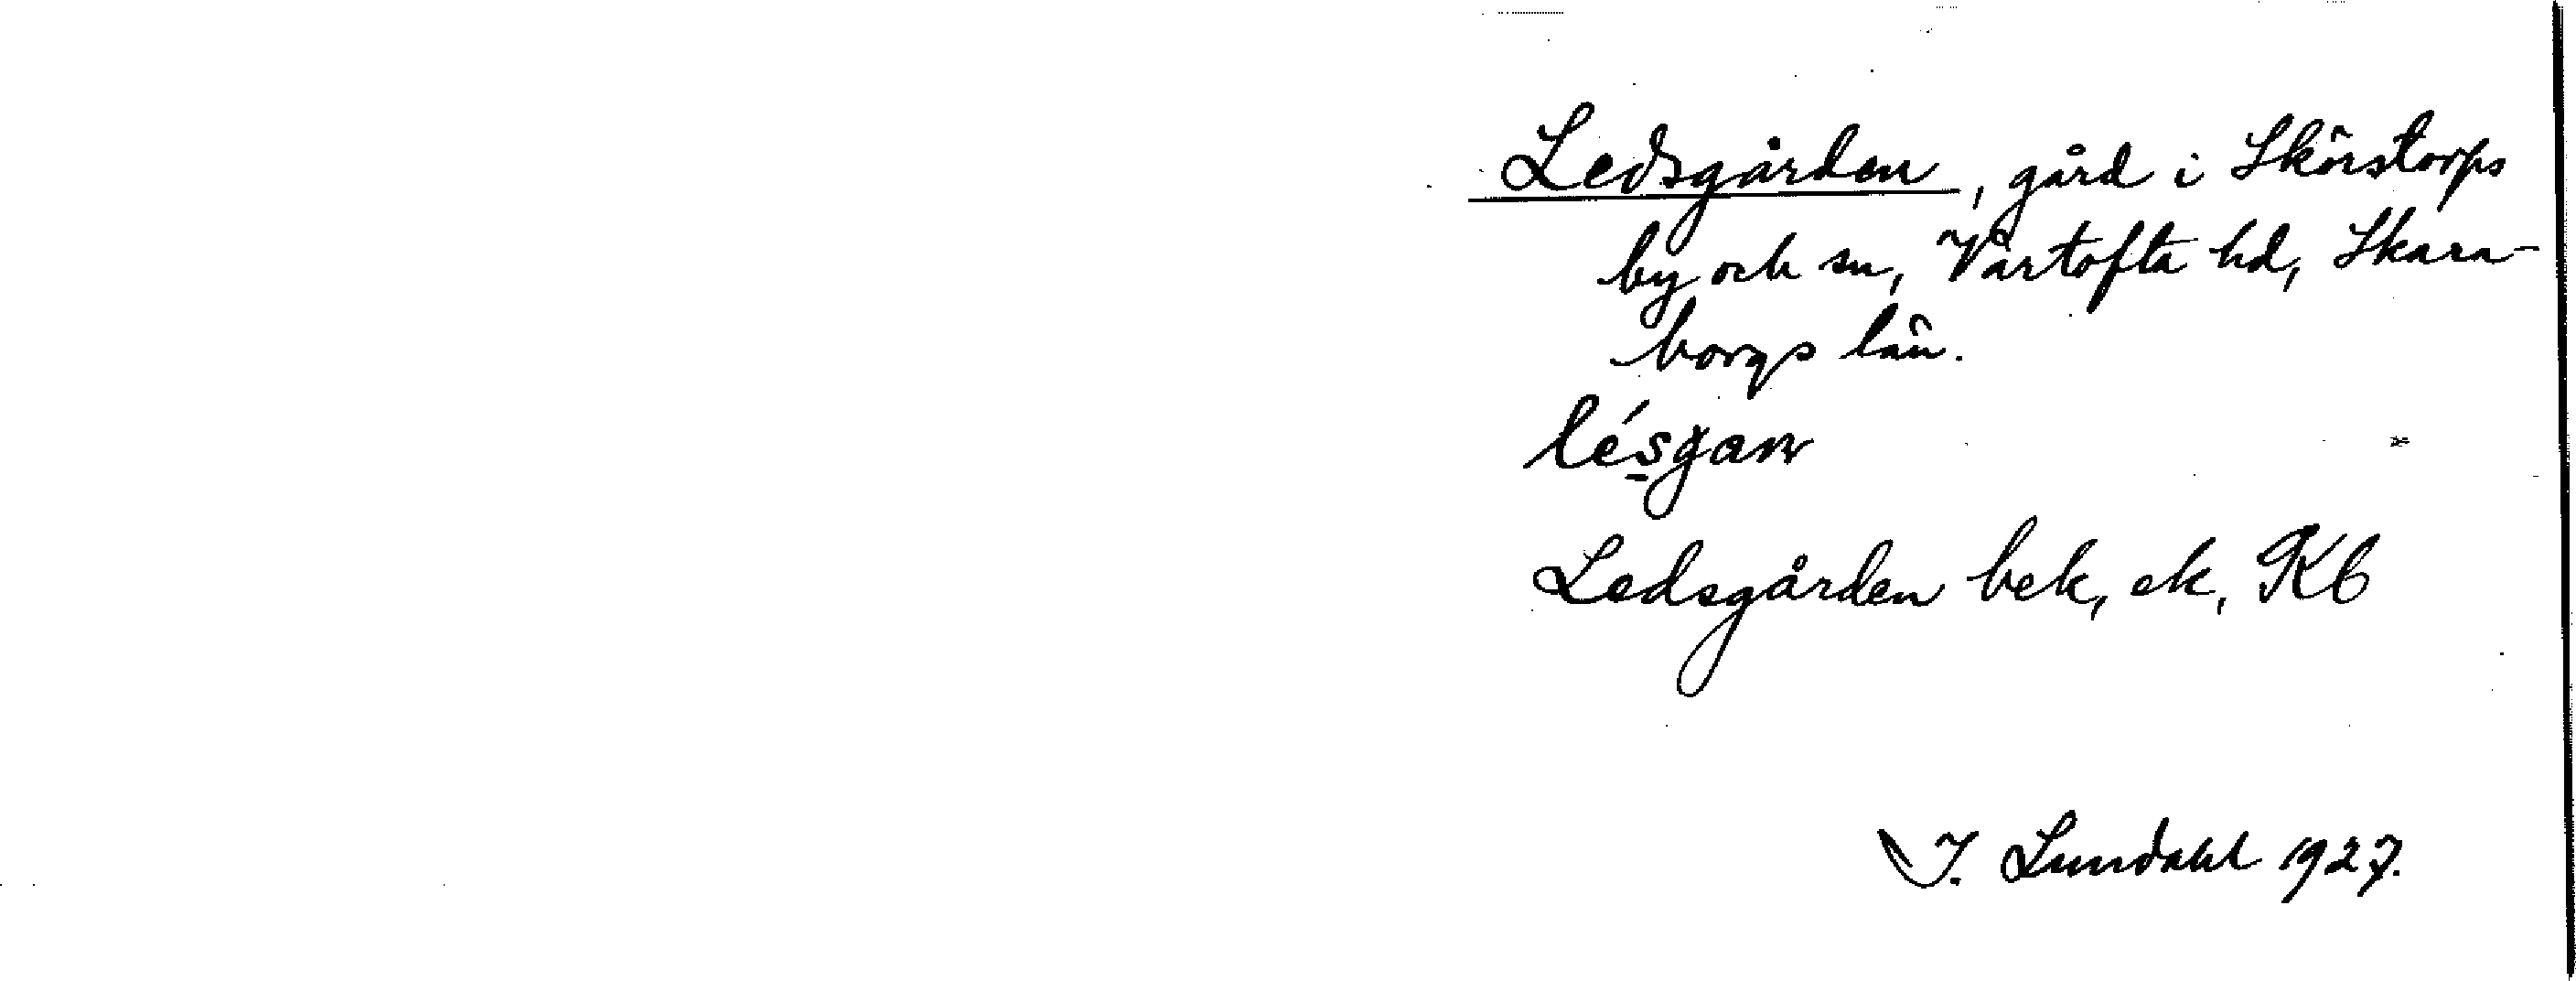 Ledsgården, gård i Skörstorps
by och sn, Vartofta hd, Skara-
borgs län.
lésgan
Ledsgården bek, ek, Kb
I. Lundahl 1927.